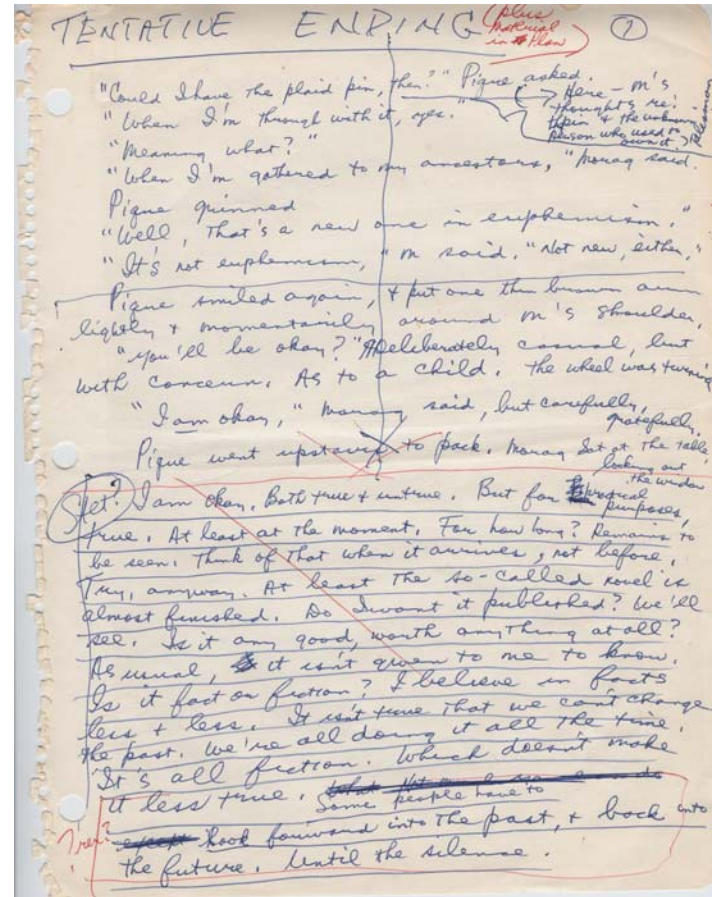 TENTATIVE ENDING (plus Material in Plan) 1
"Could I have the plaid pin, then?" Pique asked.
Here - M's thoughts re: the pin & the unknown person who used to own it. Talisman
"When I'm through with it, yes."
"Meaning what?"
"When I'm gathered to my ancestors," Morag said.
Pique grinned
"Well, that's a new one in euphemism."
"It's not euphemism," M said. "Not new, either."
Pique smiled again, & put one thin brown arm
lightly & momentarily around M's shoulder,
"You'll be okay?" Deliberately casual, but
with concern. As to a child. The wheel was turning
"I am okay," Morag said, but carefully, gratefully.
Pique went upstairs to pack. Morag sat at the table, looking out the window
I am okay. Both true & untrue. But for practical purposes,
true. At least at the moment. For how long? Remains to
be seen. Think of that when it arrives, not before.
Try, anyway. At least the so-called novel is
almost finished. Do I want it published? We'll
see. Is it any good, worth anything at all?
As usual, it isn't given to me to know.
Is it fact or fiction? I believe in facts
less & less. It isn't true that we can't change
the past. We're all doing it all the time.
It's all fiction. Which doesn't make
it less true. Some people have to
look forward into the past, & back into
the future. Until the silence.